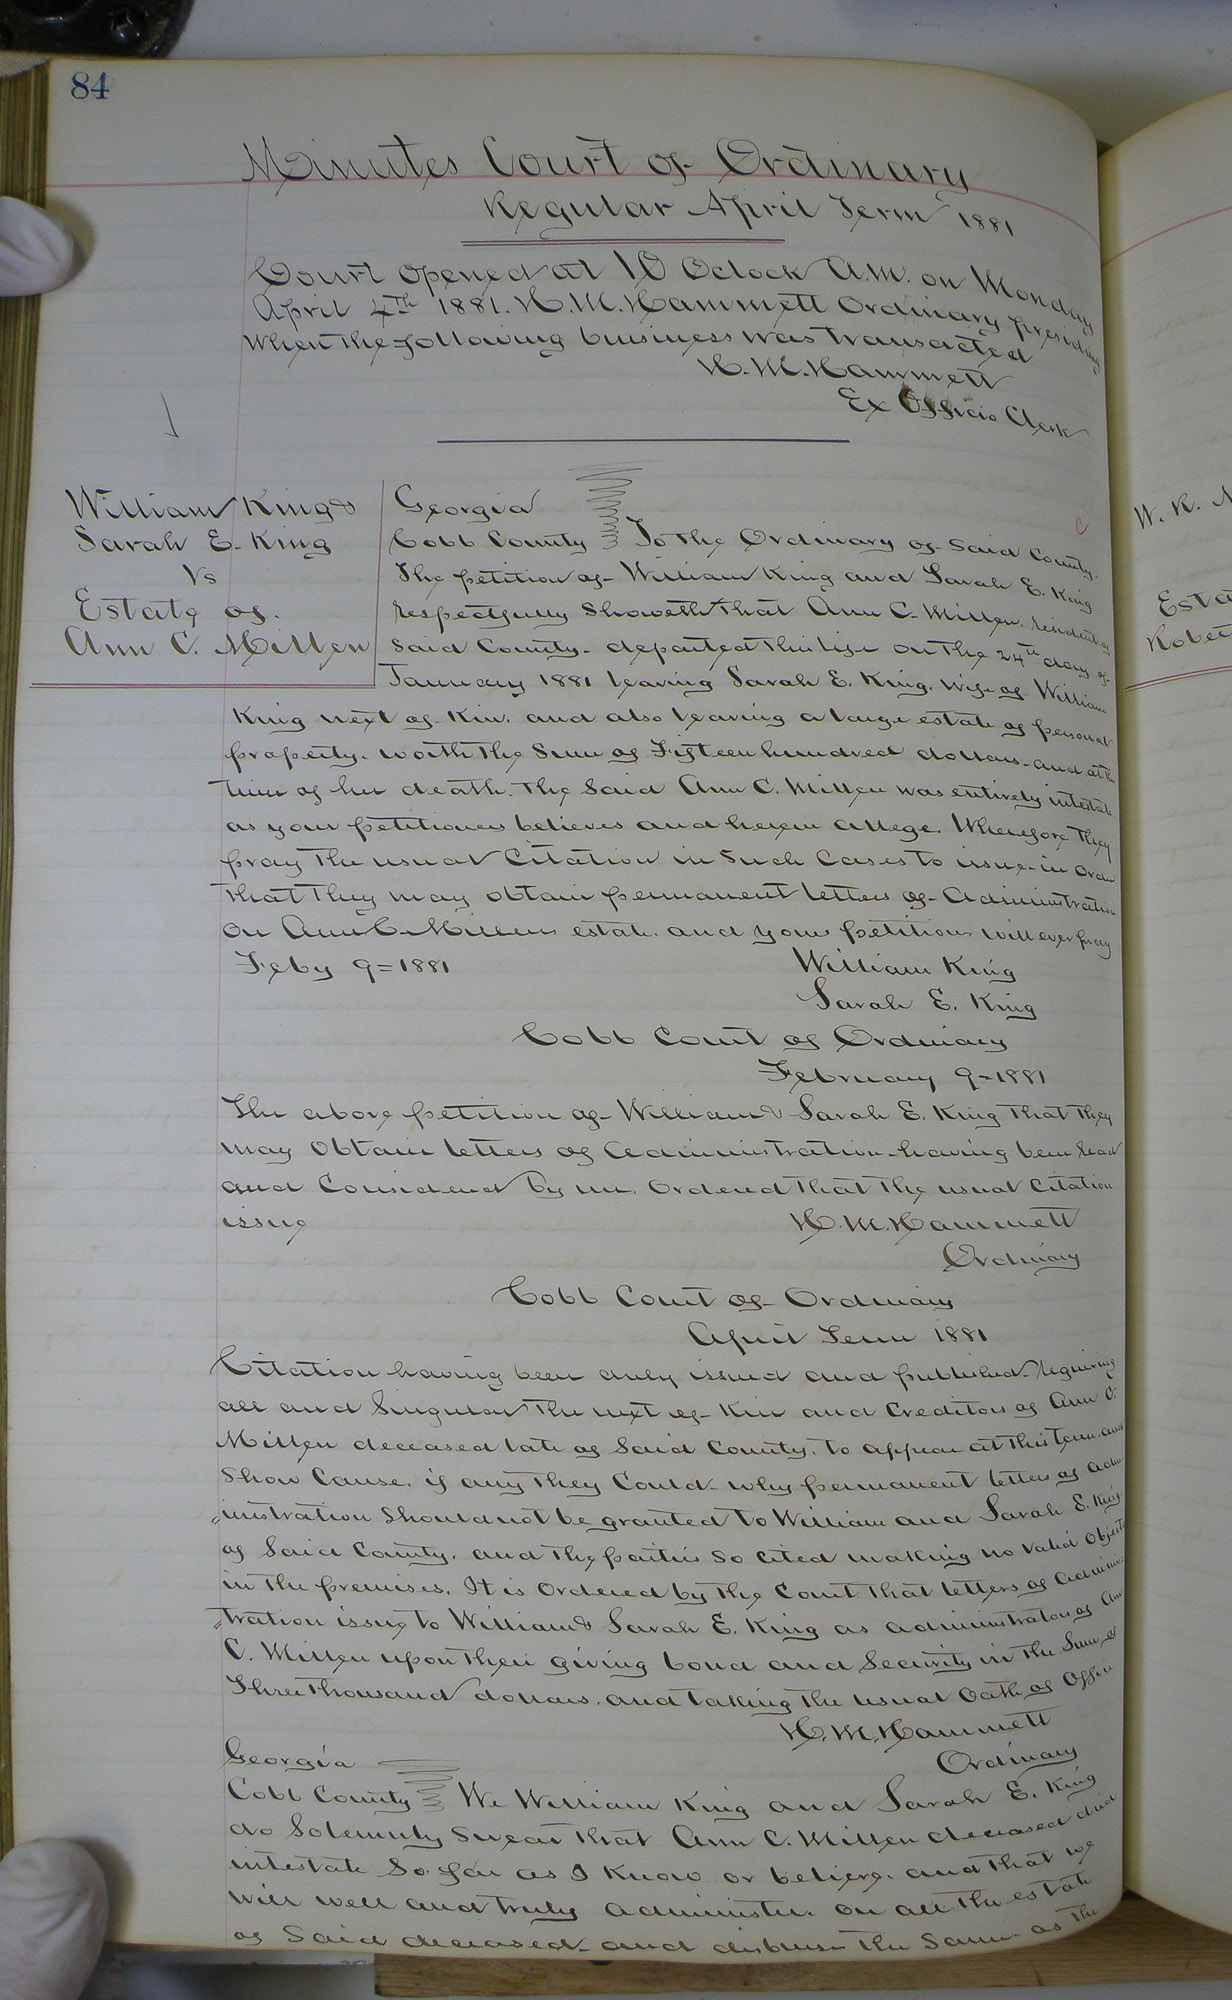 84
Minutes Court of Ordinary
Regular April Term 1881
Court opened at 10 Oclock A.M. on Monday
April 4th 1881. H. M. Hammett Ordinary presiding
When the following business was transacted
H. M. Hammett
Ex Officio Clerk
William King &
Sarah E. King
Vs
Estate of
Ann C. Millen
Georgia
Cobb County To the Ordinary of said County.
The petition of William King and Sarah E. King
respectfully Showeth that Ann C. Millen resident of
said County departed this life on the 24th day of
January 1881 leaving Sarah E. King, wife of William
King next of Kin. and also leaving a large estate of personal
property. worth the Sum of Fifteen hundred dollars. and at the
time of her death. The said Ann C. Millen was entirely intestate
as your petitioners believes and herein allege. Wherefore they
pray the usual Citation in such cases to issue in order
that they may obtain permanent letters of Administration
on Ann C Millens estate. and your petitions will ever pray
Feby 9=1881 William King
Sarah E. King
Cobb Court of Ordinary
February 9=1881
The above petition of William & Sarah E. King that they
may obtain letters of administration having been read
and Considered by me. Ordered that the usual Citation
issue H. M. Hammett
Ordinary
Cobb Court of Ordinary
April Term 1881
Citation having been duly issued and published requiring
all and Singular the next of Kin and Creditors of Ann C.
Millen deceased late of Said County. to appear at this Term. and
Show Cause. if any they Could. why permanent letters of Adm
"inistration Should not be granted to William and Sarah E. King
of Said County. and the parties so cited making no valid Object
in the premises. It is Ordered by the Court that letters of adminis
"tration issue to William & Sarah E. King as administrators of Ann
C. Millen upon their giving bond and Security in the Sum of
Three thousand dollars. and taking the usual Oath of Office
H. M. Hammett
Georgia Ordinary
Cobb County We William King and Sarah E. King
do Solemnly swear that Ann C. Millen deceased died
intestate So far as I know or believe. and that we
will well and truly administer. on all the estate
of Said deceased and disburse the Same as the
W. K.
Esta
Rober